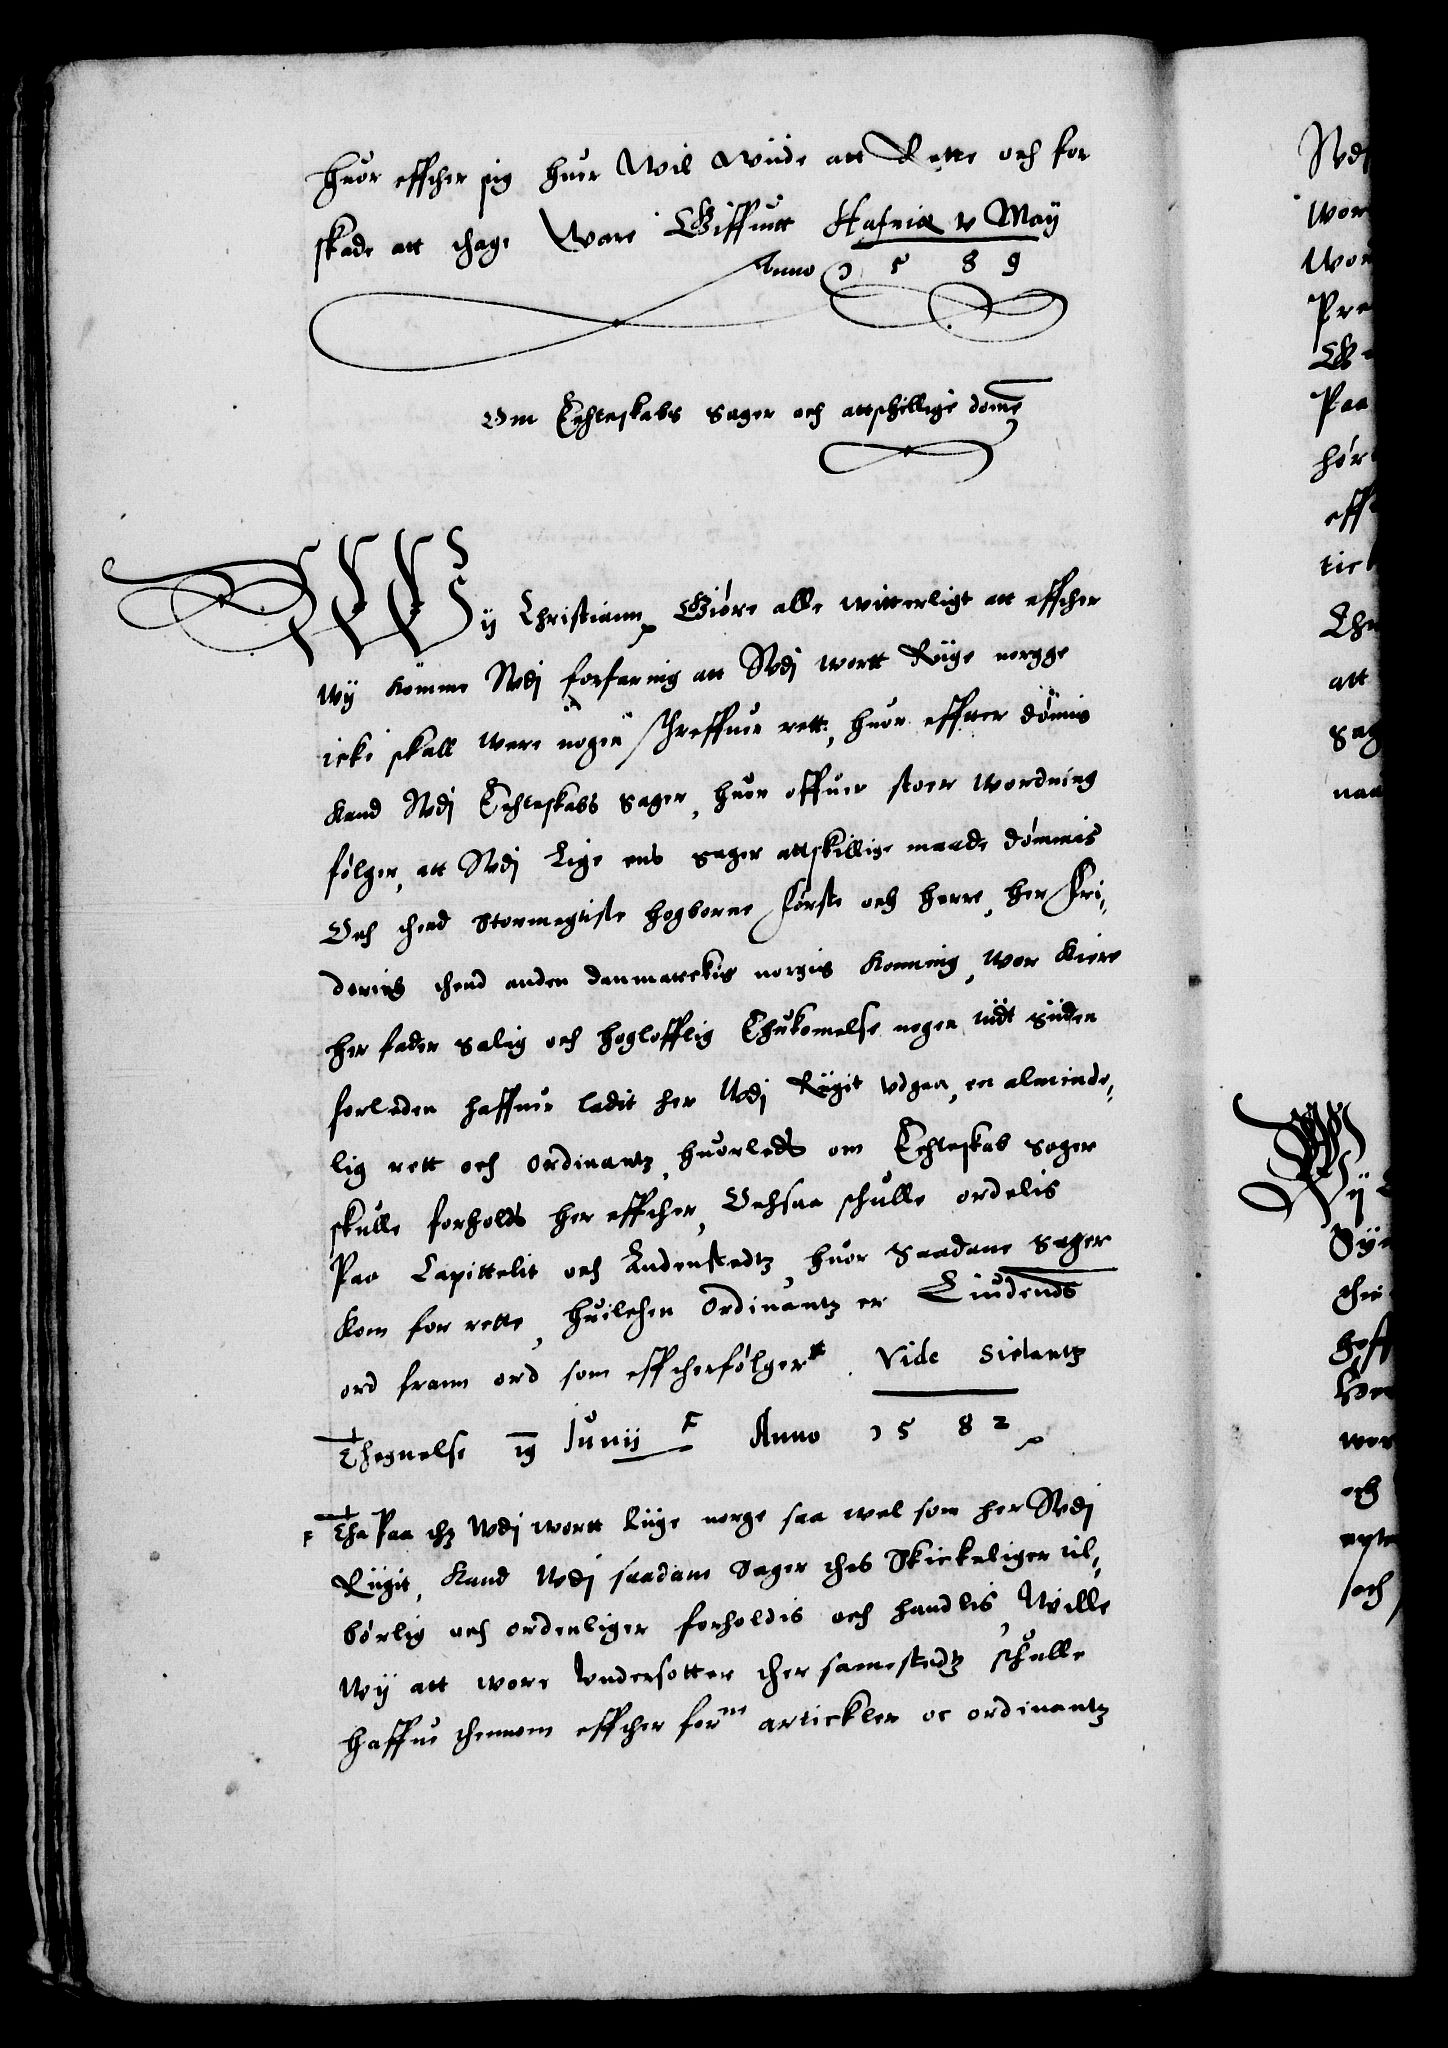 Huor effther sig huer Wil Wiide att Rette och for
skade att thage Ware Giffuitt Hafniæ v Maÿ
Anno 1589
Om Echteskabs sager och attschillige dome
Wÿ Christiann Giøre alle witterligt att effther
Wÿ komme Udj forfaring att Udj wortt Riige norgge
icke skall were nogen schreffuen rett, huor effter dømis
kand Udj Echteskabs sager, huor offuer stoer Wordning
følger, att Udj Lige ens sager attskillige maade dømmis
Och thend Stormegtiste hogborneFørste och herre, her Fri,
derich thend anden danmarckis norgis Konning, Wor kiere
her fader salig och hoglofflig Ihukomelse nogen tidt siiden
forleden haffuer ladit her Udj Riigit Udgaa, en alminde,
lig rett och ordinantz, huorledes om Echteskab sager
skulle forholdes her effther, Ochsaa schulle ordelis
Paa Capittelit och Andenstedtz, huor saadane sager
kom for rette, huilchen Ordinantz er Liudends
ord frann ord som effther følger Vide Sielantz
Thegnelse 19 Junij Anno 1582
Tha Paa thz Udj wortt Riige norge saa wel som her Udj
Riigit, kand Udj saadann Sager thes Skickeliger til,
børlig och ordenliger forholdis och handlis, Wille
Wÿ att wore Undersotter ther samestedtz schulle
haffue thennom effther for^ne artickler oc ordinantz